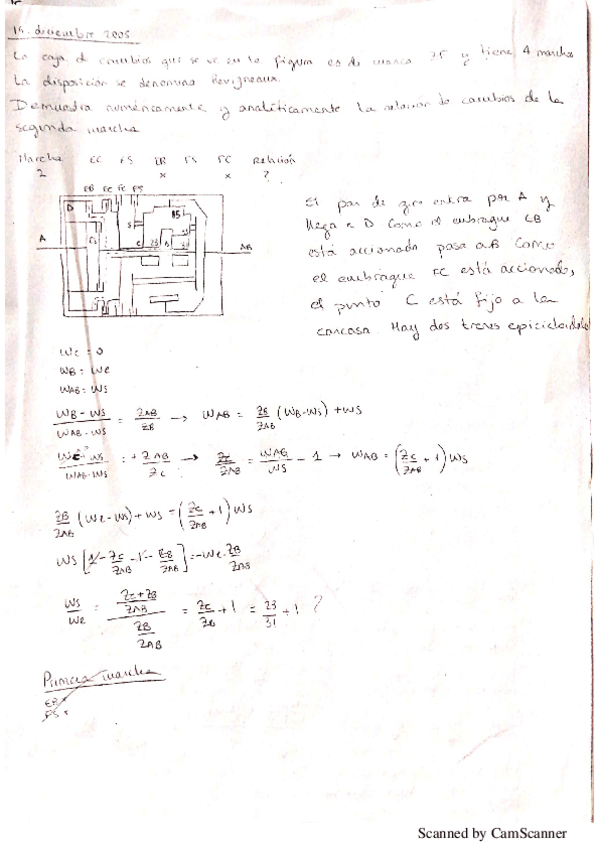 15. diciembre 2005
La caja de cambios que se ve en la figura es de marca ZF y tiene 4 marchas
La disposición se denomina Ravigneaux.
Demuestra numéricamente y analíticamente la relación de cambios de la
segunda marcha
Marcha EC ES ER FS FC Relación
2 x x ?
EB FC FS
D
A
AB
El par de giro entra por A y
llega a D Como el embrague CB
está accionado pasa a B Como
el embrague FC está accionado,
el punto C está fijo a la
carcasa. Hay dos trenes epicicloidales
Wc = 0
WB = We
WAB = WS
(WB - WS)/(WAB - WS) = ZAB/ZB → WAB = ZB/ZAB (WB - WS) + WS
(WC - WS)/(WAB - WS) = + ZAB/ZC → ZC/ZAB = WAB/WS - 1 → WAB = (ZC/ZAB + 1) WS
ZB/ZAB (We - WS) + WS = (ZC/ZAB + 1) WS
WS [1 - ZC/ZAB - 1 - ZB/ZAB] = -We · ZB/ZAB
WS/We = ((ZC + ZB)/ZAB)/(ZB/ZAB) = ZC/ZB + 1 = 23/31 + 1 ?
Primera marcha
Scanned by CamScanner